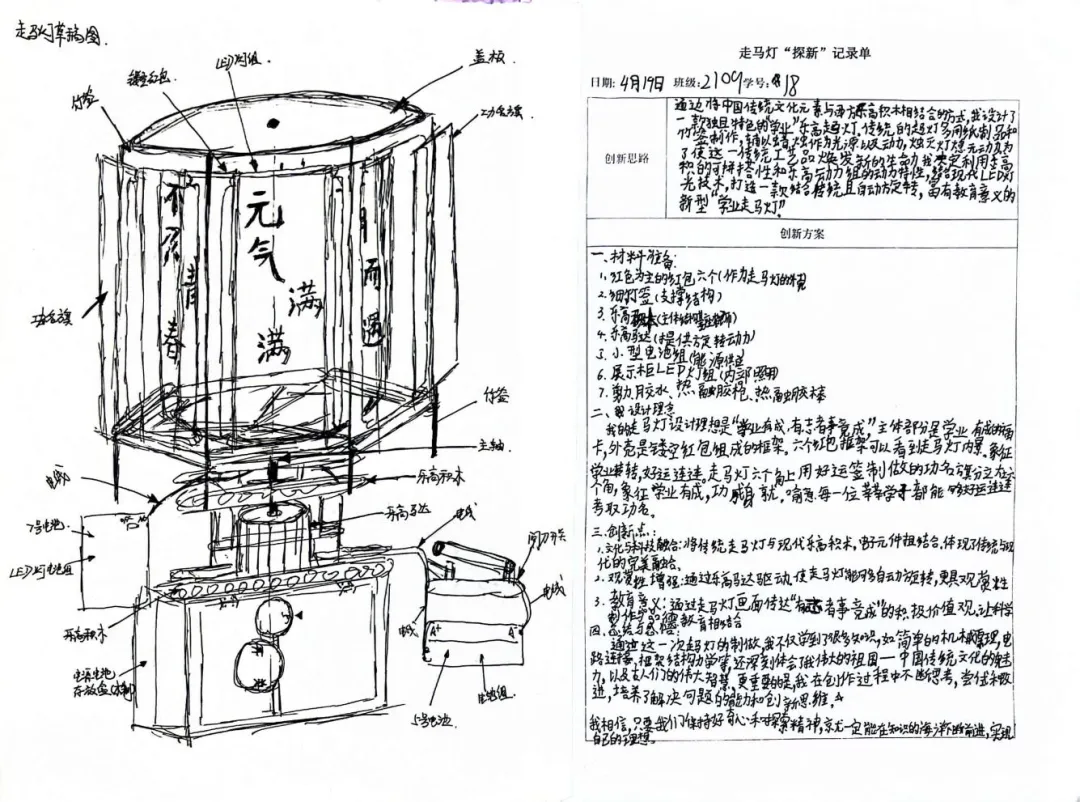 走马灯草稿图.
LED灯组.
盖板
镂空红包.
竹签
功名旗
不负青春
元气满满
而遇
功名旗
竹签
主轴
电线
乐高积木
乐高马达
电线
闸刀开关
7号电池.
LED灯电池组
电线
电线
乐高积木
A+
A-
5号电池.
电池组.
走马灯“探新”记录单
日期: 4月19日 班级:2104 学号: 18
创新思路
通过将中国传统文化元素与西方乐高积木相结合的方式,我设计了
一款独具特色的“学业”乐高走马灯.传统的走马灯多用纸制品和
竹签制作,辅以蜡烛作为光源以及动力,烛灭灯熄无动力为
了使这一传统工艺品焕发新的生命力.我决定利用乐高
积的可拼搭性和乐高动力组的动力特性,结合现代LED灯
光技术,打造一款结合传统且自动方定转,富有教育意义的
新型“学业走马灯”.
创新方案
一、材料准备:
1、红色为主的红包六个(作为走马灯的
2、细竹签(支撑结构)
3、乐高积木(主体结构
4、乐高马达(提供方定转动力)
5、小型电池组(能源供应
6、展示柜LED灯组(内部照明
7、剪刀胶水、热融胶枪、热融胶棒
二、设计理念
我的走马灯设计理想是“学业有成,有志者事竟成”主体部分是学业有成的插
卡,外壳是镂空红包组成的框架,六个红包框架可以看到走马灯内景.象征
学业转转,好运连连.走马灯六个角上用好运签制做的功名旗分立六
个角,象征学业有成,功成名就.寓意每一位莘莘学子都能够好运连连
考取功名.
三、创新点:
1.文化与科技融合:将传统走马灯与现代乐高积木,电子元件相结合,体现了传统与现
代的完美融合.
2、观赏性增强:通过乐高马达驱动,使走马灯能够自动方定转,更具观赏性
3、教育意义:通过走马灯画面传达“有志者事竟成”的积极价值观,让科学
制作与品德教育相结合
四、总结与感悟:
通过这一次走马灯的制做,我不仅学到了很多知识,如简单的机械原理,电
路连接,框架结构力学等,还深刻体会了我伟大的祖国——中国传统文化的魅
力,以及古人们的伟大智慧.更重要的是,我在创作过程中不断思考,尝试和改
进,培养了解决问题的能力和创新思维.
我相信,只要我们保持好奇心和探索精神,就一定能在知识的海洋不断前进,实现
自己的理想.